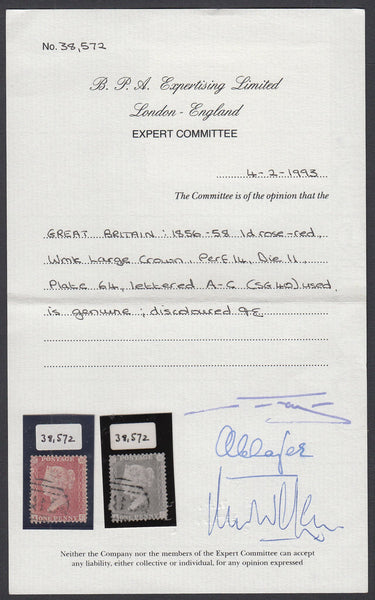 No. 38,572
B. P. A. Expertising Limited
London - England
EXPERT COMMITTEE
4-2-1993
The Committee is of the opinion that the
GREAT BRITAIN : 1856-58 1d rose-red,
Wmk Large Crown, Perf 14, Die 11,
Plate 64, lettered A-G (SG 40) used
is genuine ; discoloured
38,572 38,572
ONE PENNY ONE PENNY
Neither the Company nor the members of the Expert Committee can accept
any liability, either collective or individual, for any opinion expressed